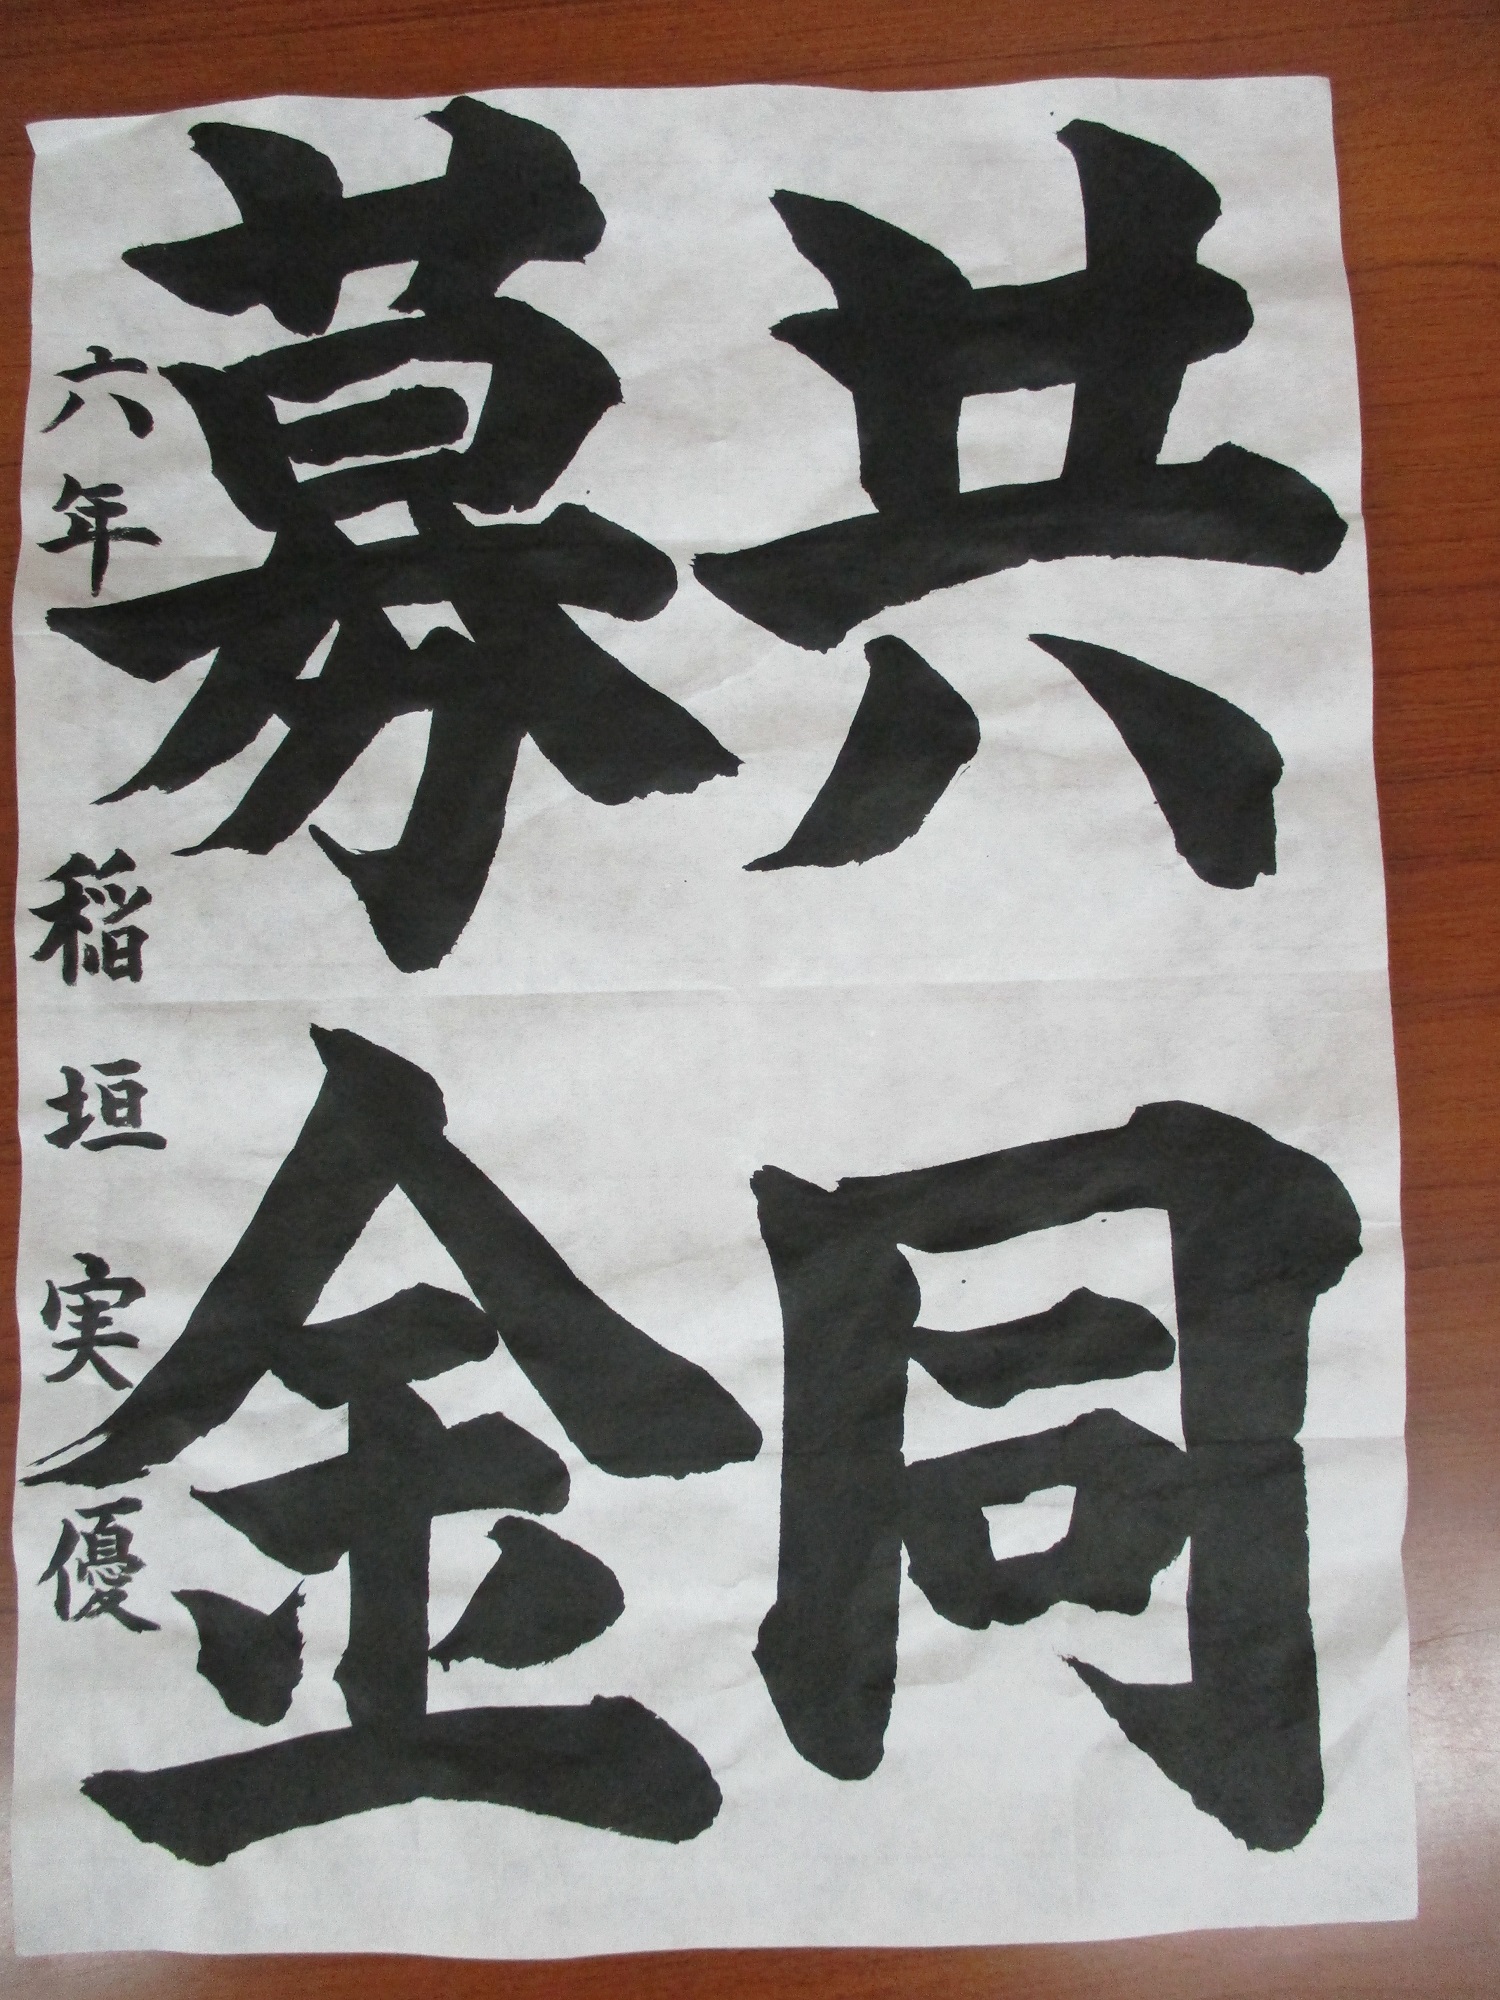 共同
募金
六年 稲垣実優